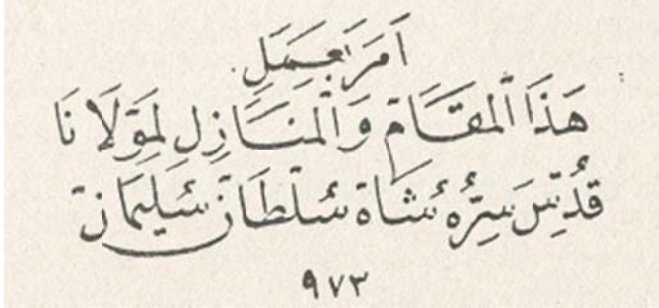 اَمَرَ بِعَمَلِ
هَذَا الْمَقَامْ وَالْمَنَازِلِ لِمَوْلَانَا
قُدِّسَ سِرُّهُ شَاهْ سُلْطَانْ سُلَيْمَانْ
٩٧٣